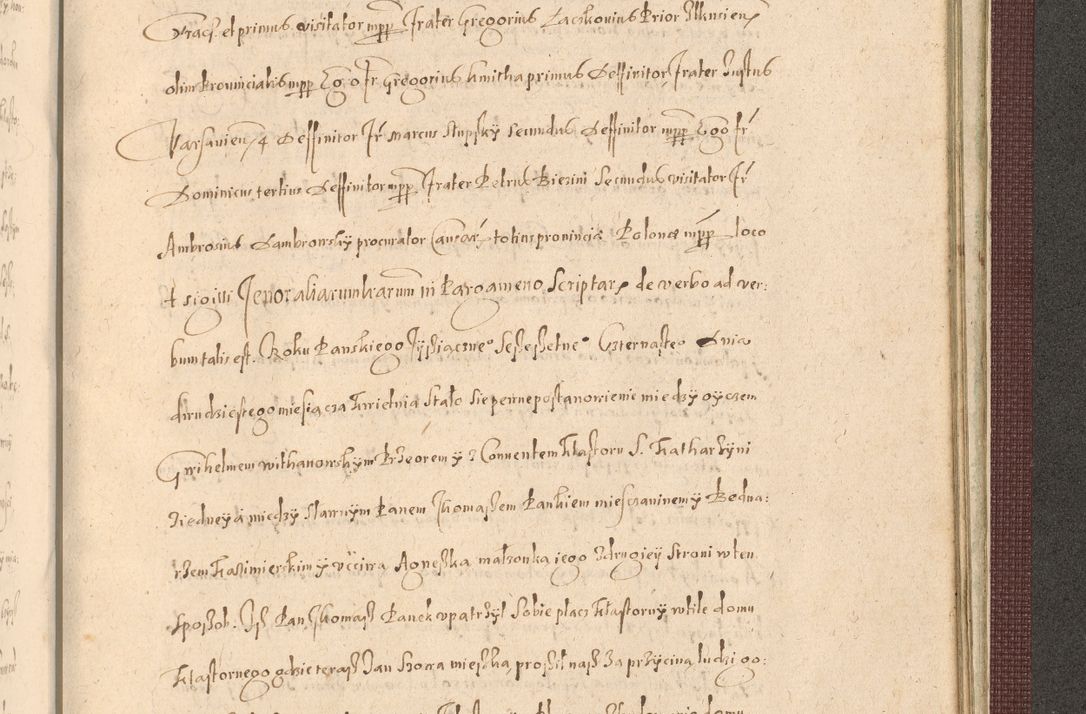 Crac͠s. et primus visitator mpp Frater Gregorius Laczkouius Prior Ilkusien͠
olim Prouincialis mpp Ego Fr Gregorius kmitha primus Deffinitor Frater Justus
Varsauien͠ 4 Deffinitor Fr Marcus Stupsky Secundus Deffinitor mpp Ego fr
Dominicus tertius Deffinitor mpp Frater Petrus Biezini Secundus visitator Fr
Ambrosius Dambrowsky procurator totius provinciæ Polonæ mpp loco
sigilli in Pargameno Scriptar de verbo ad ver:
bum talis est. Roku Panskiego Tysiącznego Sesesetnego Czternastego Dnia
dwudziestego miesiącza kwietnia Stało Sie pewne postanowienie miedzy oyczem
Gwilhelmem withanowskym Przeorem y z Conuentem klastoru S. Katharzÿni
ziedney a miedzy Slawnym Panem Thomassem Pankiem miesczaninem y Bedna:
rzem Kazimierskim y vcciwa Agneszka małzonka iego zdrugiey Stroni wten
sposob. Isz Pan Thomasz Panek vpatrzył Sobie placz klastorny wtile domu
klastornego gdzie terasz Jan Szocza mieszka, prosił nasz za przyciną ludzi go: